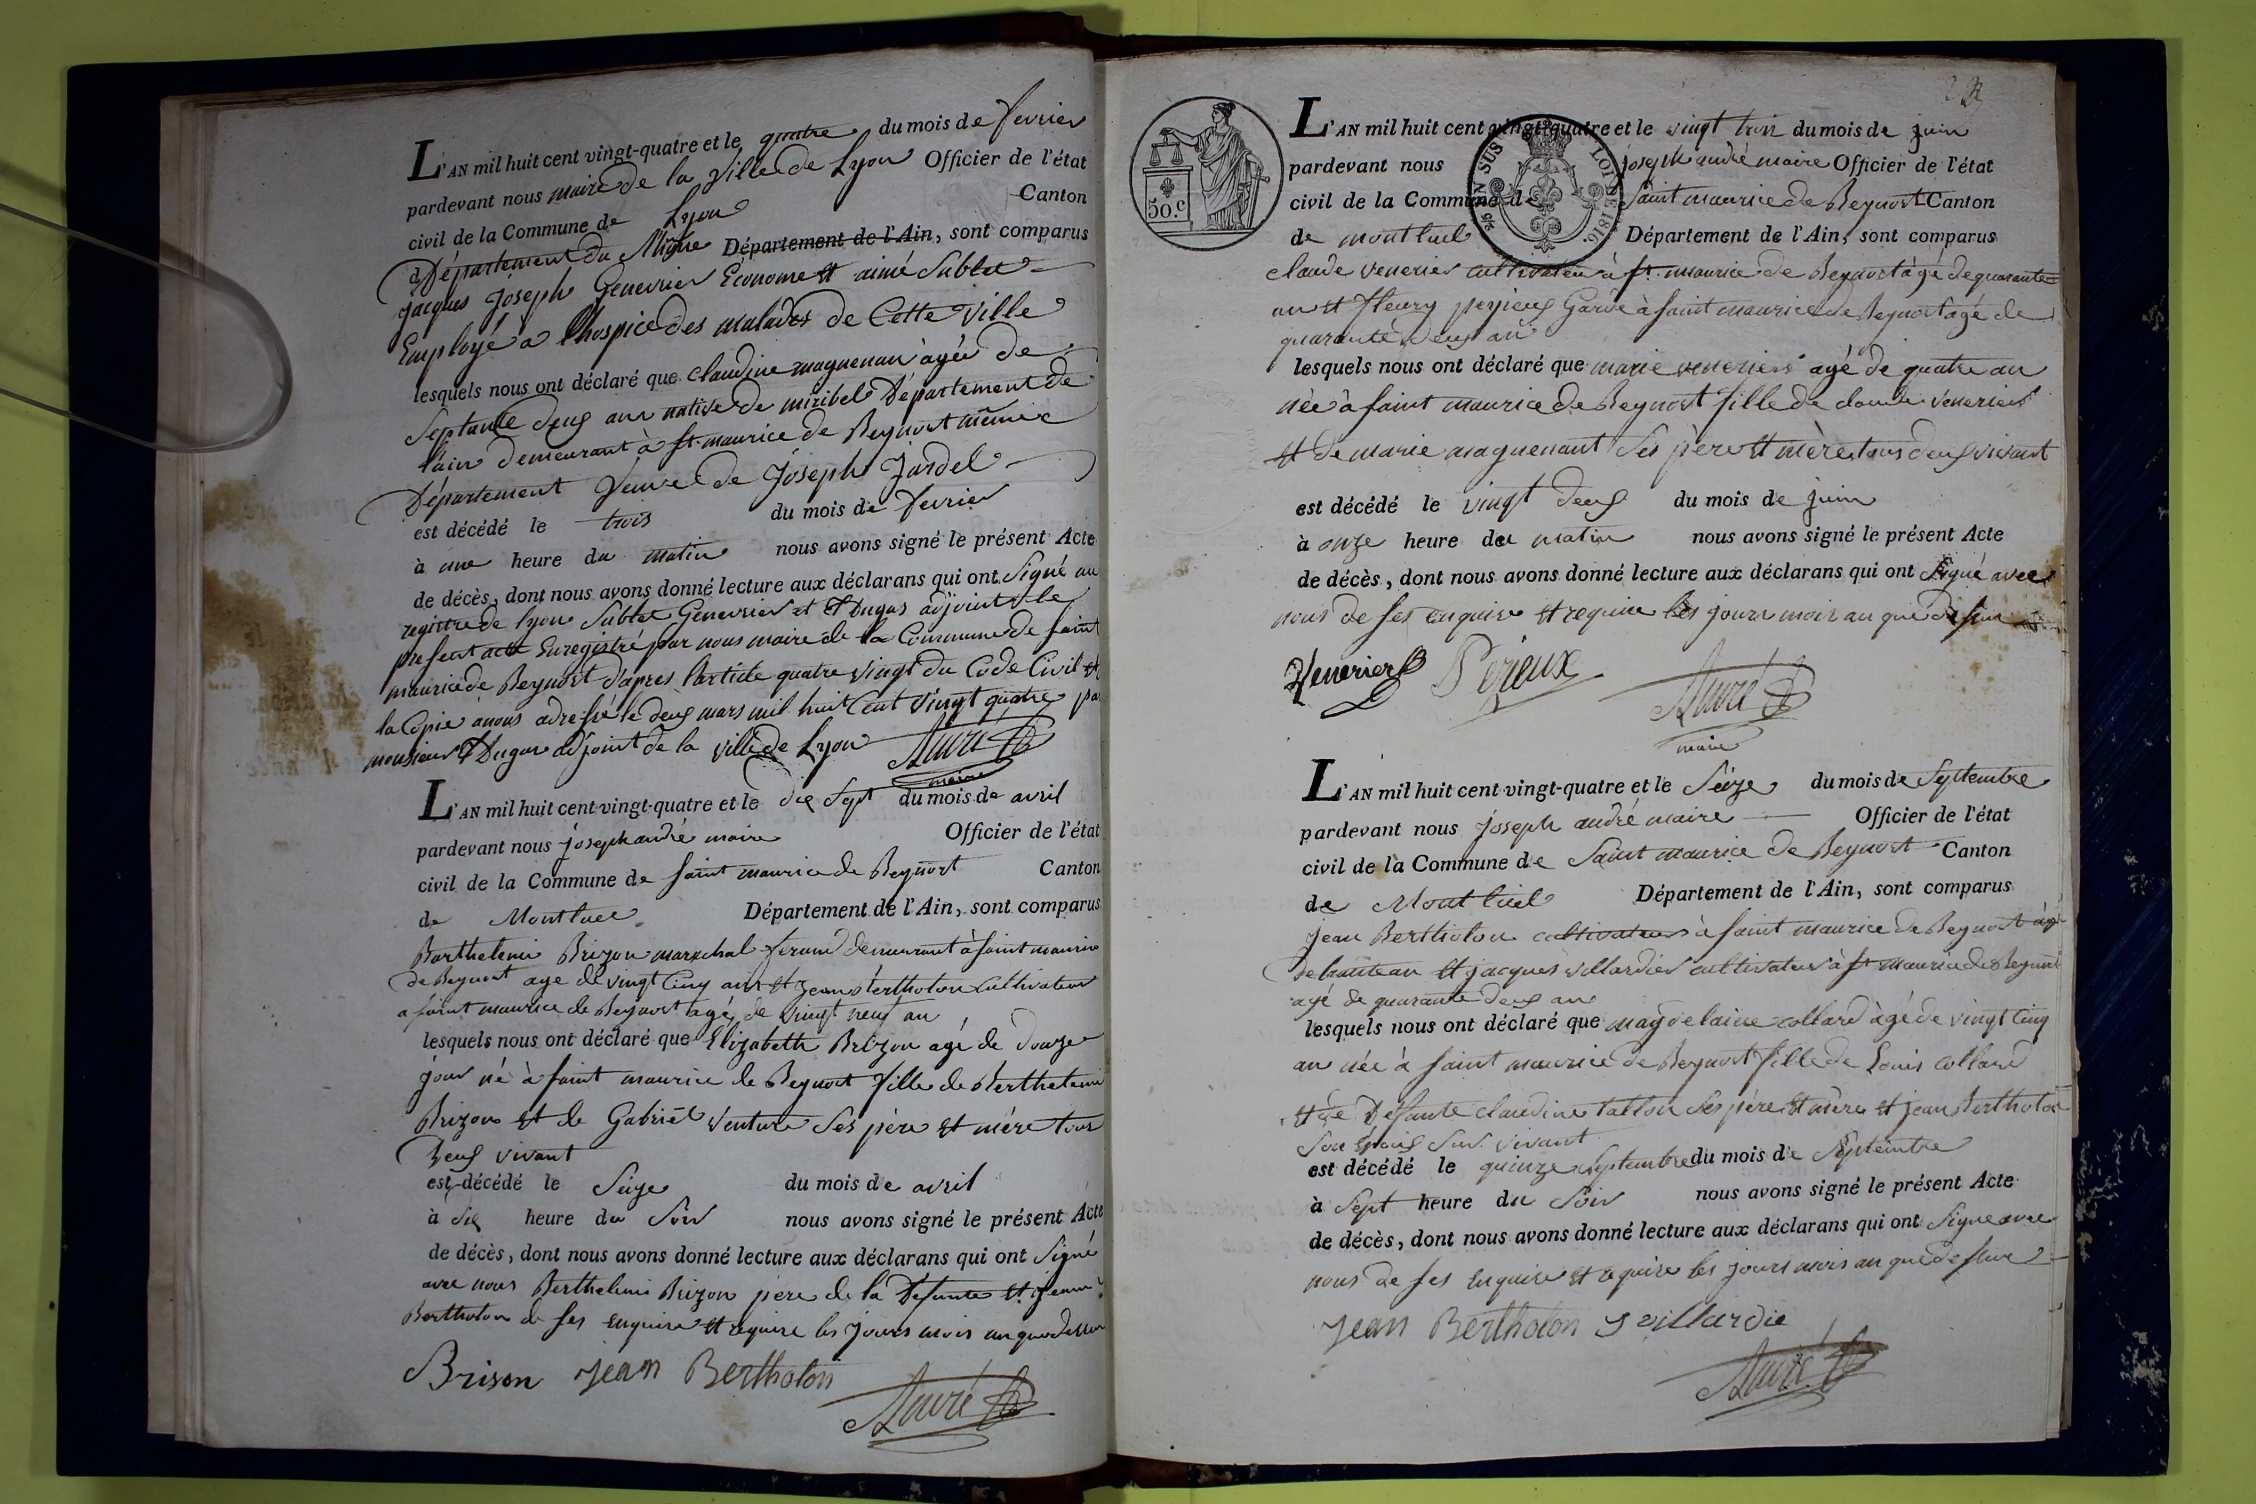 L'AN mil huit cent vingt-quatre et le quatre du mois de fevrier
pardevant nous maire de la ville de Lyon Officier de l'état
civil de la Commune de Lyon Canton
Département du Rhône Département de l'Ain, sont comparus
jacques joseph Genevrier Econome et aimé Sublet
Employé a l'hospice des malades de Cette Ville
lesquels nous ont déclaré que claudine maguenan agée de
Septante deux ans native de miribel Département de
l'ain demeurant à st maurice de Beynost même
Département Veuve de Joseph Jardel
est décédé le trois du mois de fevrier
à une heure du matin nous avons signé le présent Acte
de décès, dont nous avons donné lecture aux déclarans qui ont Signé au
registre de lyon Sublet Genevrier et Dugas adjoint le
present acte Enregistré par nous maire de la Commune de saint
maurice de Beynost d'apres l'article quatre vingt du Code Civil et
la Copie a nous adressé le deux mars mil huit Cent Vingt quatre par
monsieur Dugas adjoint de la ville de Lyon
maire
L'AN mil huit cent vingt-quatre et le dix Sept du mois de avril
pardevant nous joseph andré maire Officier de l'état
civil de la Commune de saint maurice de Beynost Canton
de Montluel Département de l'Ain, sont comparus
Barthelemi Brizon marechal ferand demeurant à saint maurice
de Beynost age de vingt Cinq ans et jean Bertholon Cultivateur
a saint maurice de Beynost agé de vingt neuf an
lesquels nous ont déclaré que Elizabeth Brizon agé de douze
jour né à saint maurice de Beynost fille de Berthelemi
Brizon et de Gabriel Venture Ses père et mére tous
Deux vivant
est décédé le Seize du mois de avril
à Six heure du Soir nous avons signé le présent Acte
de décès, dont nous avons donné lecture aux déclarans qui ont Signé
avec nous Berthelemi Brizon père de la Defunte et jean
Bertholon de ses enquire et require les jours mois an que dessus
Brison Jean Bertholon
L'AN mil huit cent vingt-quatre et le vingt trois du mois de juin
pardevant nous joseph andré maire Officier de l'état
civil de la Commune de Saint maurice de Beynost Canton
de montluel Département de l'Ain, sont comparus
50.c
EN SUS
LOI DE 1816.
claude venerier cultivateur à st. maurice de Beynost agé de quarante
an et fleury perieux Garde à saint maurice de Beynost agé de
quarante deux an
lesquels nous ont déclaré que marie venerier agé de quatre an
née à saint maurice de Beynost fille de claude venerier
et de marie maguenant Ses père et mère tous deux vivant
est décédé le vingt deux du mois de juin
à onze heure du matin nous avons signé le présent Acte
de décès, dont nous avons donné lecture aux déclarans qui ont Signé avec
nous de ses enquire et require les jours mois an que dessus
Venerier Perieux
maire
L'AN mil huit cent vingt-quatre et le Seize du mois de Septembre
pardevant nous joseph andré maire Officier de l'état
civil de la Commune de Saint maurice de Beynost Canton
de Montluel Département de l'Ain, sont comparus
Jean Bertholon cultivateur à saint maurice de Beynost agé
de trante an et jacques villardier cultivateur à st maurice de Beynost
agé de quarante deux an
lesquels nous ont déclaré que magdelaine collard àgé de vingt Cinq
an née à saint maurice de Beynost fille de Louis collard
et de Defunte claudine tallon Ses père et mère et jean Bertholon
Son époux Sur vivant
est décédé le quinze Septembre du mois de Septembre
à Sept heure du Soir nous avons signé le présent Acte
de décès, dont nous avons donné lecture aux déclarans qui ont Signe avec
nous de ses enquire et require les jours mois an que dessus
Jean Bertholon J villardie